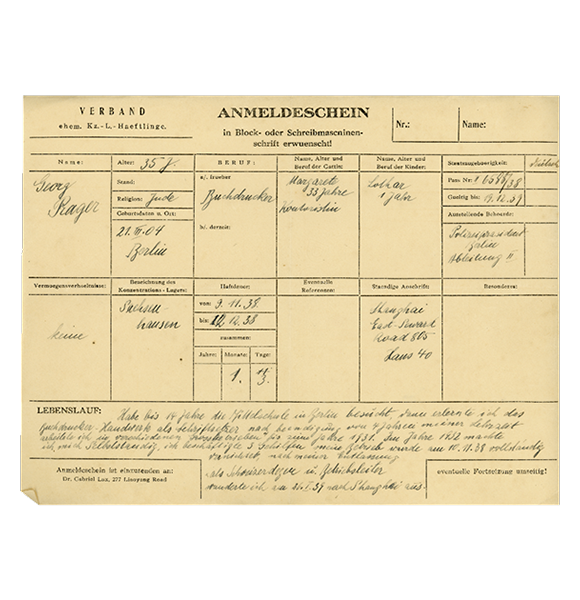 VERBAND
ehem. Kz.-L.-Haeftlinge.
ANMELDESCHEIN
in Block- oder Schreibmaschinen-
schrift erwuenscht!
Nr.:
Name:
Name:
Georg
Rager
Alter: 35 J.
Stand:
Religion: Jude
Geburtsdaten u. Ort:
21. 04
Berlin
BERUF:
a/. frueher
Buchdrucker
b/. derzeit:
Name, Alter und
Beruf der Gattin:
Margarete
33 Jahre
Kontoristin
Name, Alter und
Beruf der Kinder:
Lothar
1 Jahr
Staatszugehoerigkeit:
Pass Nr.:
Gueltig bis: 19.12.39
Ausstellende Behoerde:
Polizeipraesident
Berlin
Abteilung II
Vermoegensverhaeltnisse:
keine.
Bezeichnung des
Konzentrations-Lagers:
Sachsen
hausen
Haftdauer:
von: 9.11.38.
bis: 12.12.38
zusammen:
Jahre: Monate: Tage:
1. 3
Eventuelle
Referenzen:
Staendige Anschrift:
Shanghai
East Seward
Road 805
Haus 40
Besonderes:
LEBENSLAUF: Habe bis 14 Jahre die Mittelschule in Berlin besucht dann erlernte ich das
Buchdrucker-Handwerk als Schriftsetzer nach beendigung von 4 Jahren meiner Lehrzeit
arbeitete ich in verschiedenen bis zum Jahre 1931. Im Jahre 1932 machte
ich mich Selbststaendig, ich beschäftigte 3 Gehilfen mein Betrieb wurde am 10.11.38 vollständig
nach meiner Entlassung
als in
wanderte ich am nach Shanghai aus.
Anmeldeschein ist einzusenden an:
Dr. Gabriel Lax, 277 Linyang Road
eventuelle Fortsetzung umseitig!